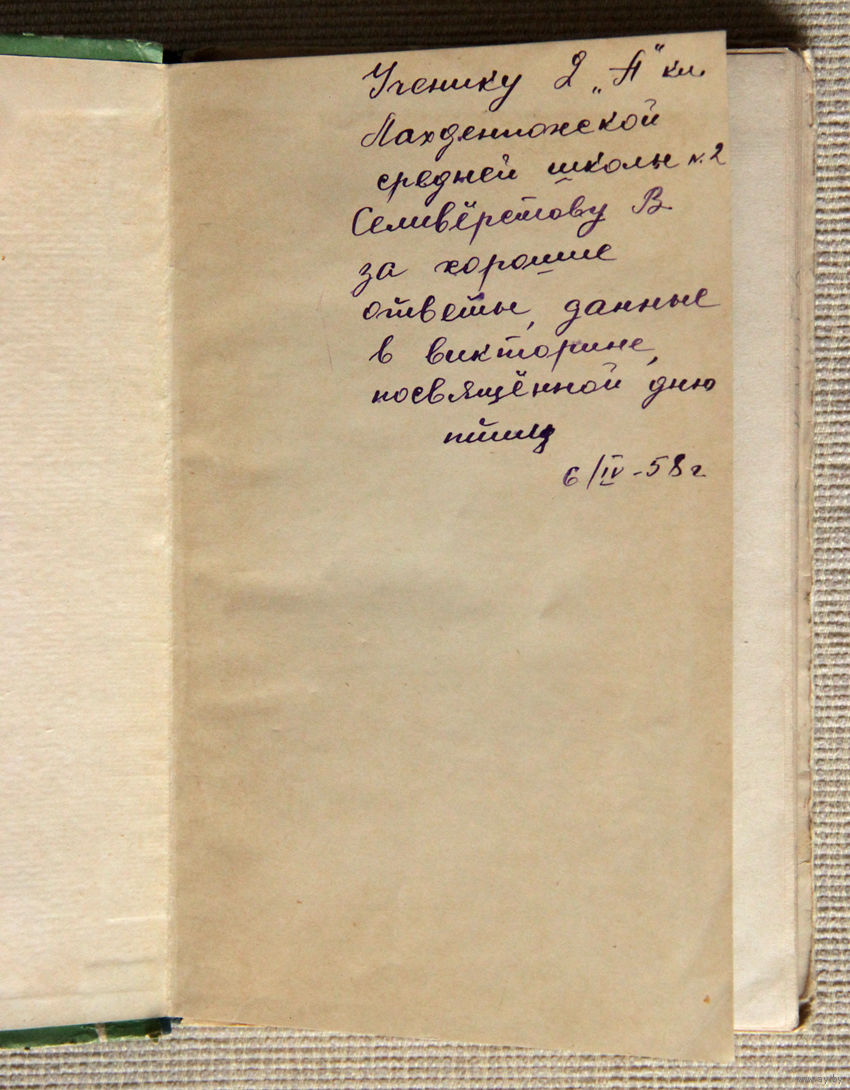 Ученику 2 „А" кл.
Лахденпохской
средней школы №2
Селивёрстову В.
за хорошие
ответы, данные
в викторине,
посвящённой дню
птиц
6/IV-58 г